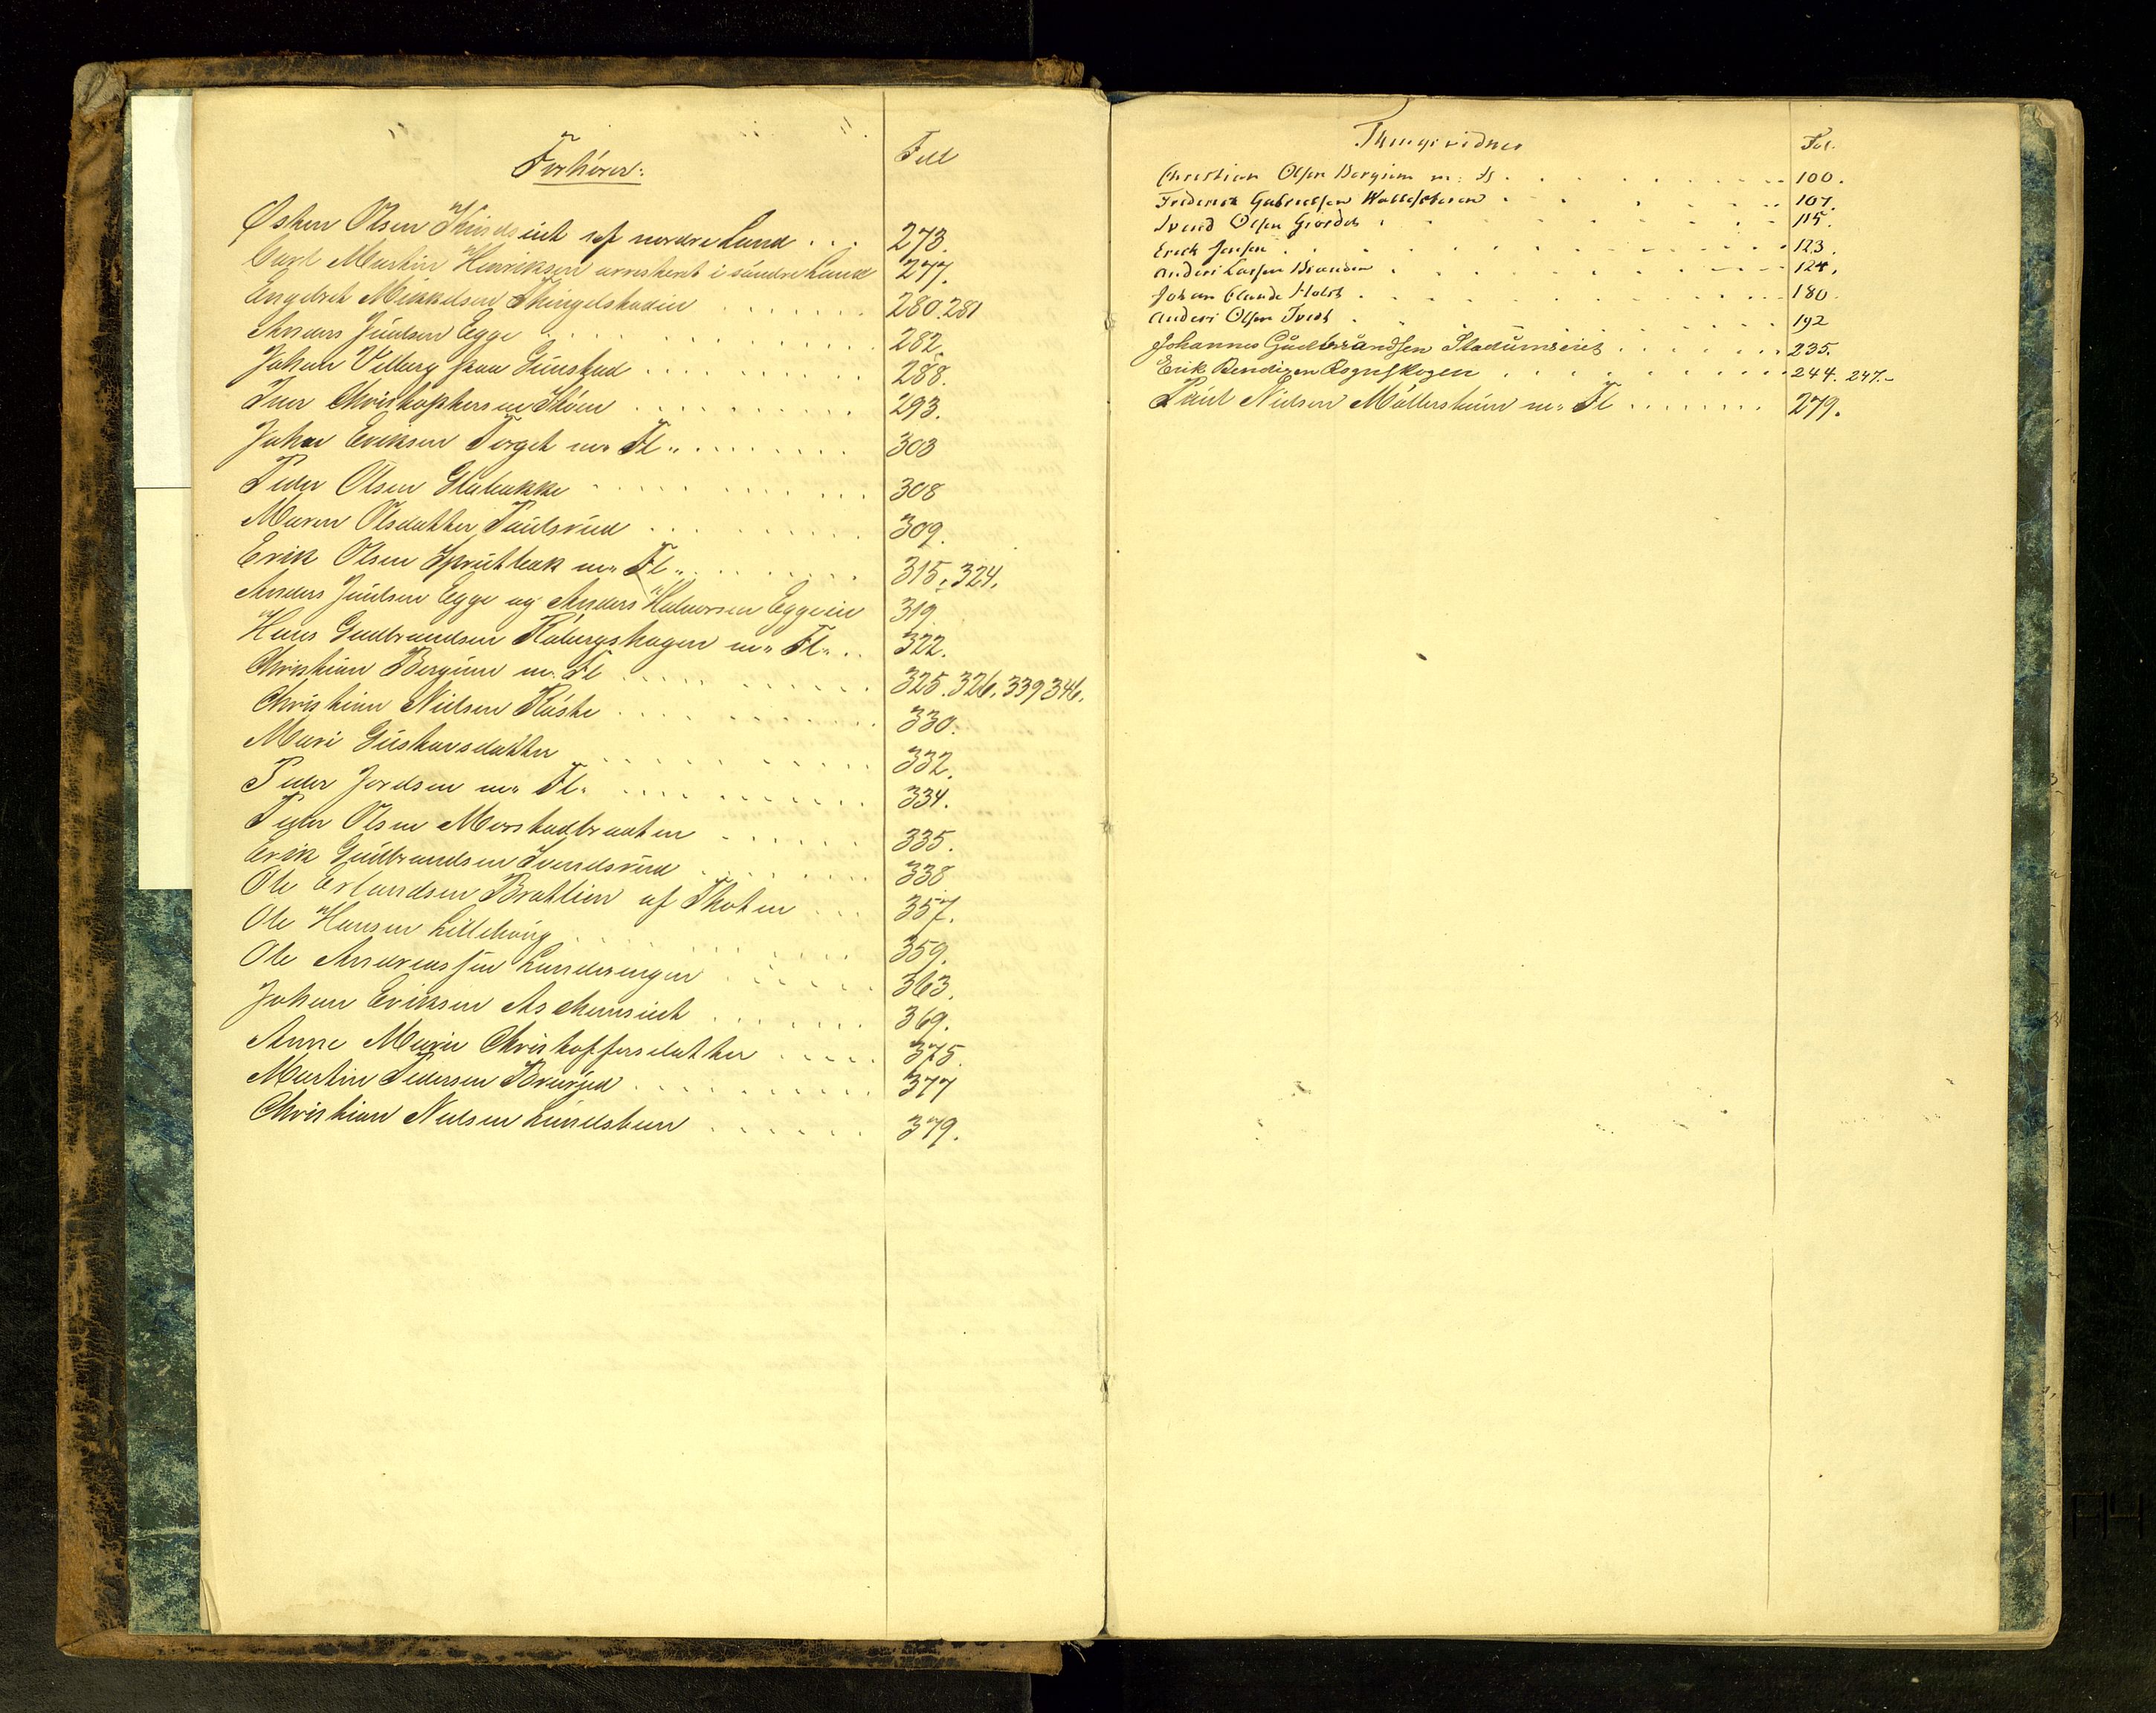 Forhører:
Foll
Østen Olsen Skindseiet af nordre Land . . . 273.
Carl Martin Henriksen arresteret i søndre Land 277.
Engebret Mikkelsen Thingelstadeie . . . . . . . 280.281
Anders Juulsen Egge . . . . . . . . 282.
Johan Velberg fra Guustad . . . . . . 288.
Iver Christophersen Skøien . . . . . . 293.
Johan Eriksen Torget m. Fl. . . . . . . 303
Peder Olsen Slabakke . . . . . . 308
Maren Olsdatter Paulsrud . . . . . . 309.
Erik Olsen m. Fl. . . . . . . 315. 324.
Anders Juulsen Egge og Anders Halvorsen Eggeeie 319.
Hans Gudbrandsen Kolbergshagen m. Fl. . . 322.
Christian Bergum m. Fl. . . . . . . 325. 326. 339 346.
Christian Nielsen Røste . . . . . . 330.
Mari Gustavsdatter . . . . . . 332.
Peder Jordsen m. Fl. . . . . . . 334.
Peder Olsen Morstadbraaten . . . . . . 335.
Erik Gudbrandsen Svendsrud . . . . . . 338
Ole Erlandsen Bratlien af Thoten . . . 357.
Ole Hansen Lillehaug . . . . . . 359.
Ole Andreassen Landeringen . . . . . . 363.
Johan Eriksen Askemseiet . . . . . . 369.
Anne Marie Christoffersdatter . . . . . 375.
Martin Pedersen . . . . . . 377
Christian Nielsen Lundsteen . . . . . . 379.
Thingsvidner
Fol.
Christian Olsen Bergum m: fl . . . . . . 100.
Frederik Gabrielsen . . . . . . 107.
Svend Olsen Giordet . . . . . . 115.
Erick Jensen . . . . . . 123.
Anders Larsen Branden . . . . . . 124.
Johan Claude Holst . . . . . . 180.
Anders Olsen Tveit . . . . . . 192
Johannes Gudbrandsen Stadumseiet . . . . . . 235.
Erik Bendixen Rognskogen . . . . . . 244. 247.
Paul Nielsen Møllerstuen m. Fl. . . . . . . 279.